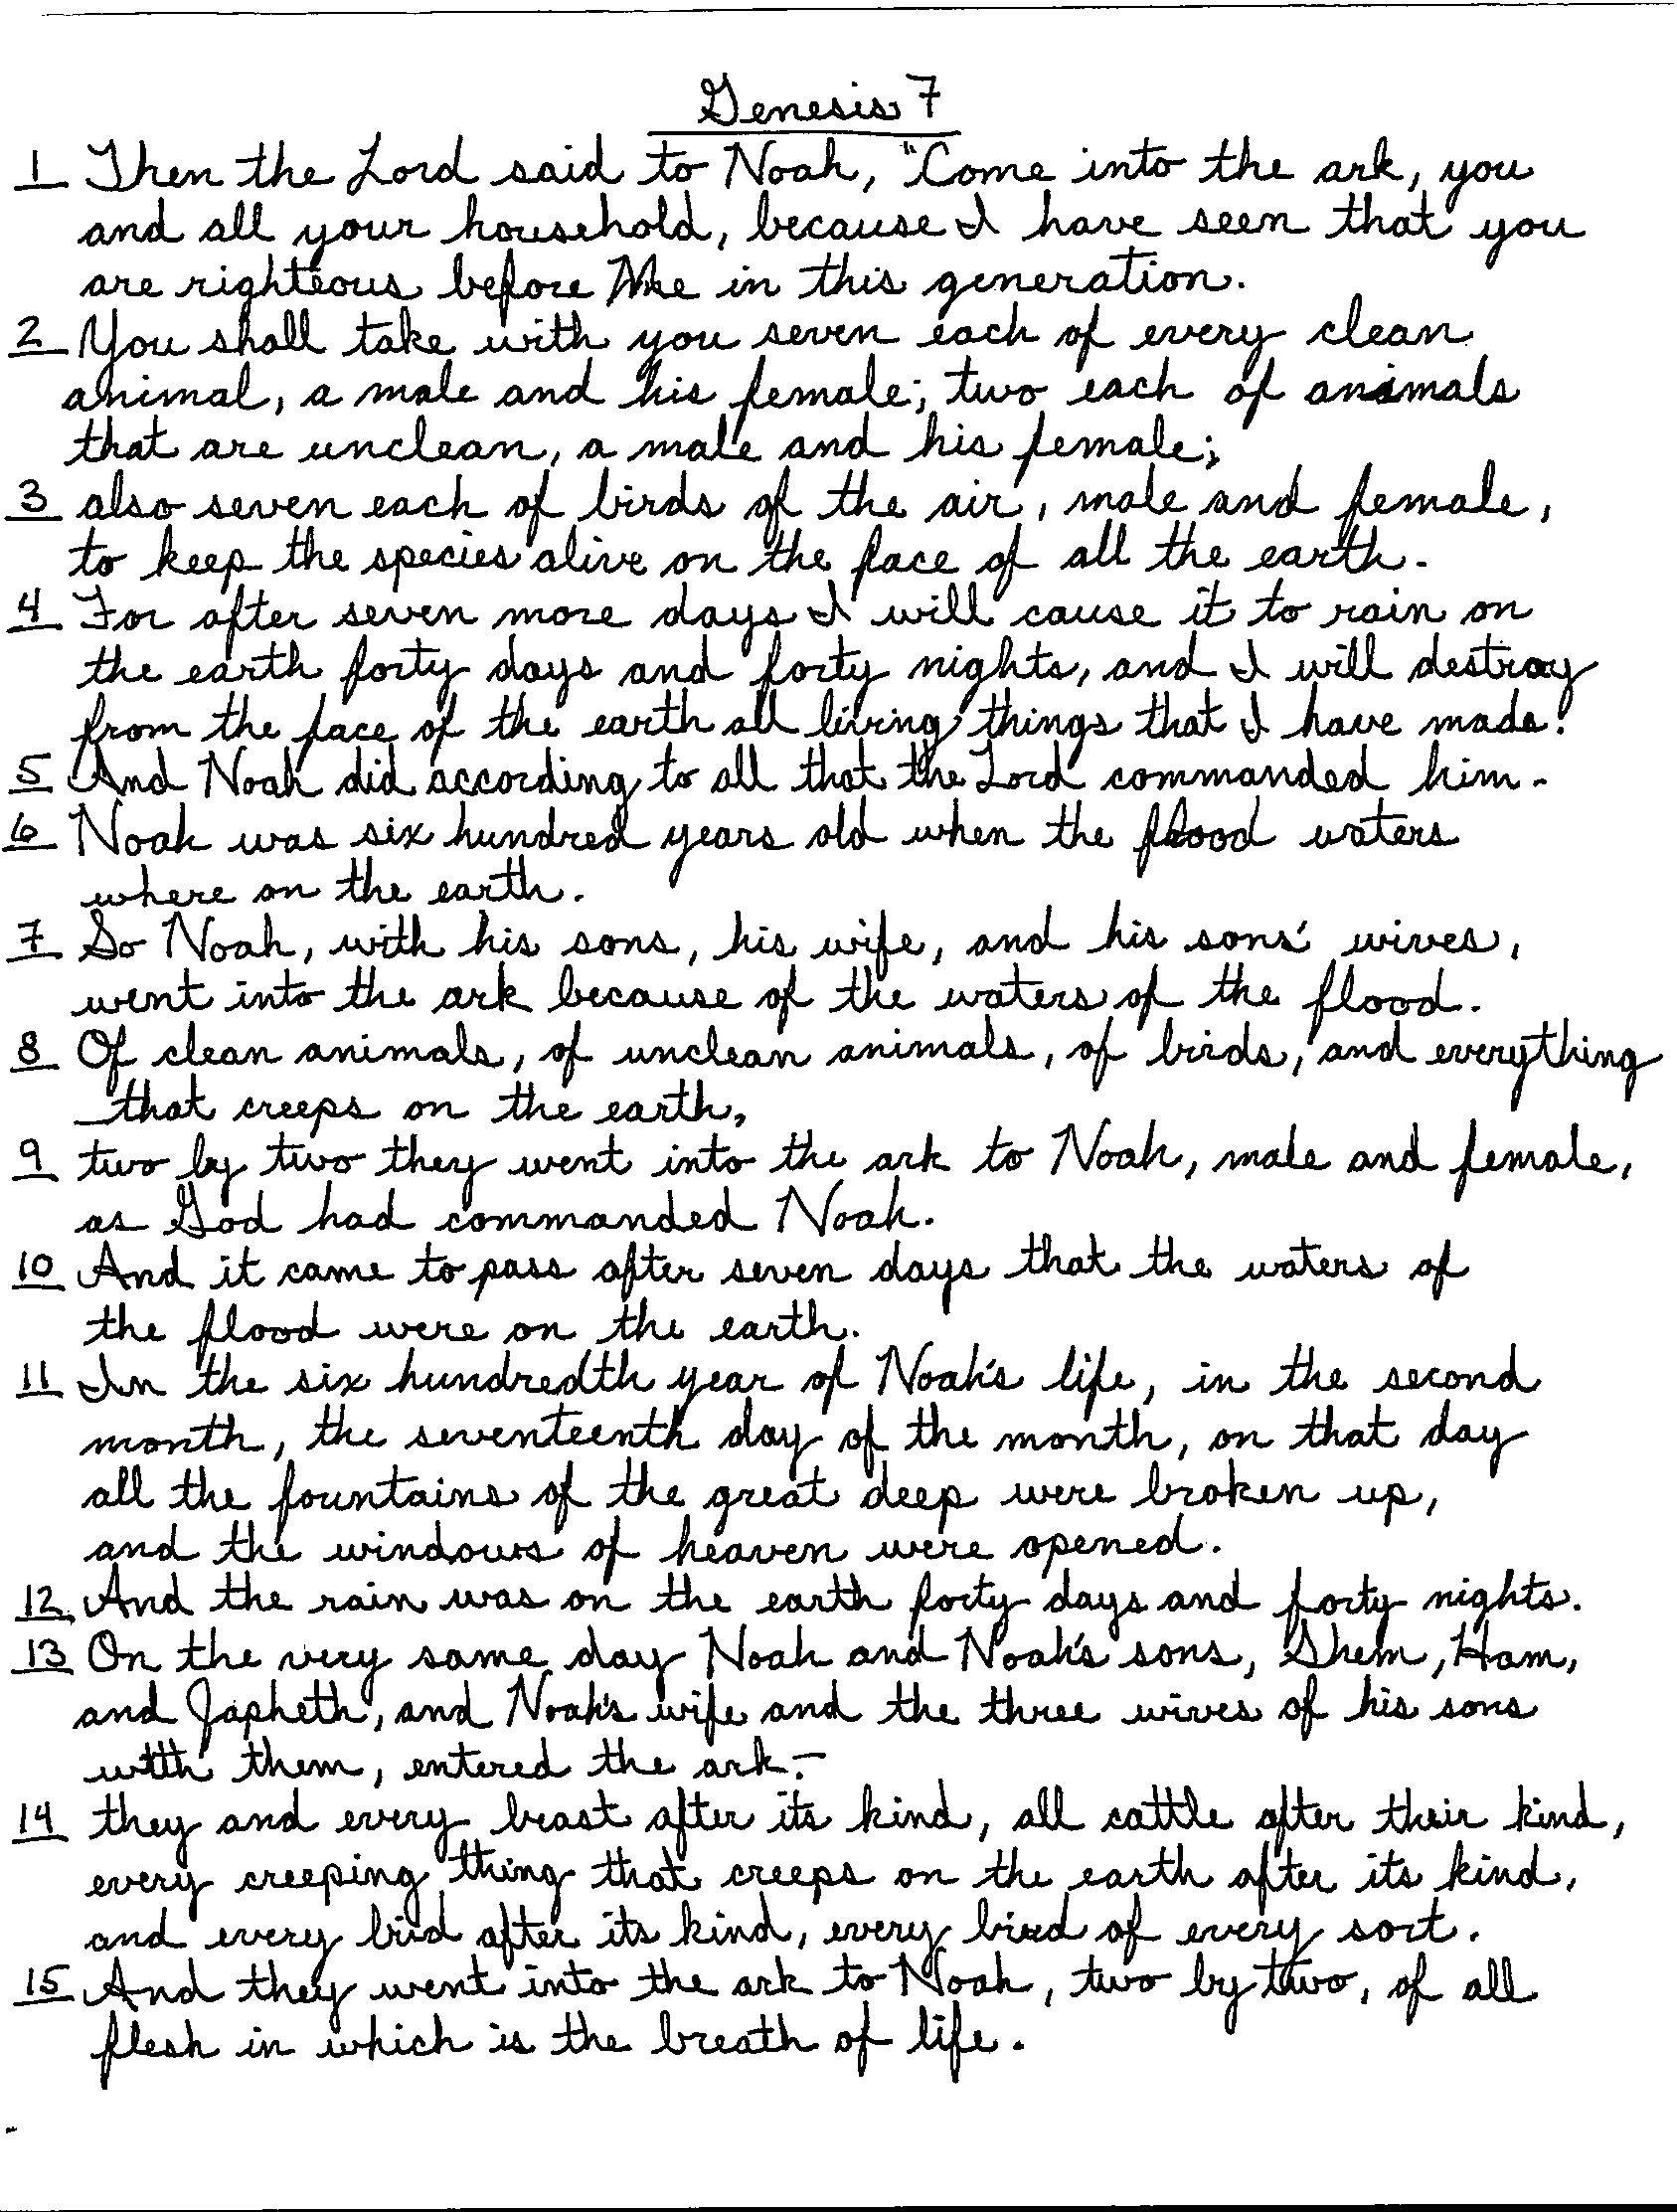 Genesis 7
1 Then the Lord said to Noah, "Come into the ark, you
and all your household, because I have seen that you
are righteous before Me in this generation.
2 You shall take with you seven each of every clean
animal, a male and his female; two each of animals
that are unclean, a male and his female;
3 also seven each of birds of the air, male and female,
to keep the species alive on the face of all the earth.
4 For after seven more days I will cause it to rain on
the earth forty days and forty nights, and I will destroy
from the face of the earth all living things that I have made."
5 And Noah did according to all that the Lord commanded him.
6 Noah was six hundred years old when the flood waters
where on the earth.
7 So Noah, with his sons, his wife, and his sons' wives,
went into the ark because of the waters of the flood.
8 Of clean animals, of unclean animals, of birds, and everything
that creeps on the earth,
9 two by two they went into the ark to Noah, male and female,
as God had commanded Noah.
10 And it came to pass after seven days that the waters of
the flood were on the earth.
11 In the six hundredth year of Noah's life, in the second
month, the seventeenth day of the month, on that day
all the fountains of the great deep were broken up,
and the windows of heaven were opened.
12 And the rain was on the earth forty days and forty nights.
13 On the very same day Noah and Noah's sons, Shem, Ham,
and Japheth, and Noah's wife and the three wives of his sons
with them, entered the ark.—
14 they and every beast after its kind, all cattle after their kind,
every creeping thing that creeps on the earth after its kind,
and every bird after its kind, every bird of every sort.
15 And they went into the ark to Noah, two by two, of all
flesh in which is the breath of life.